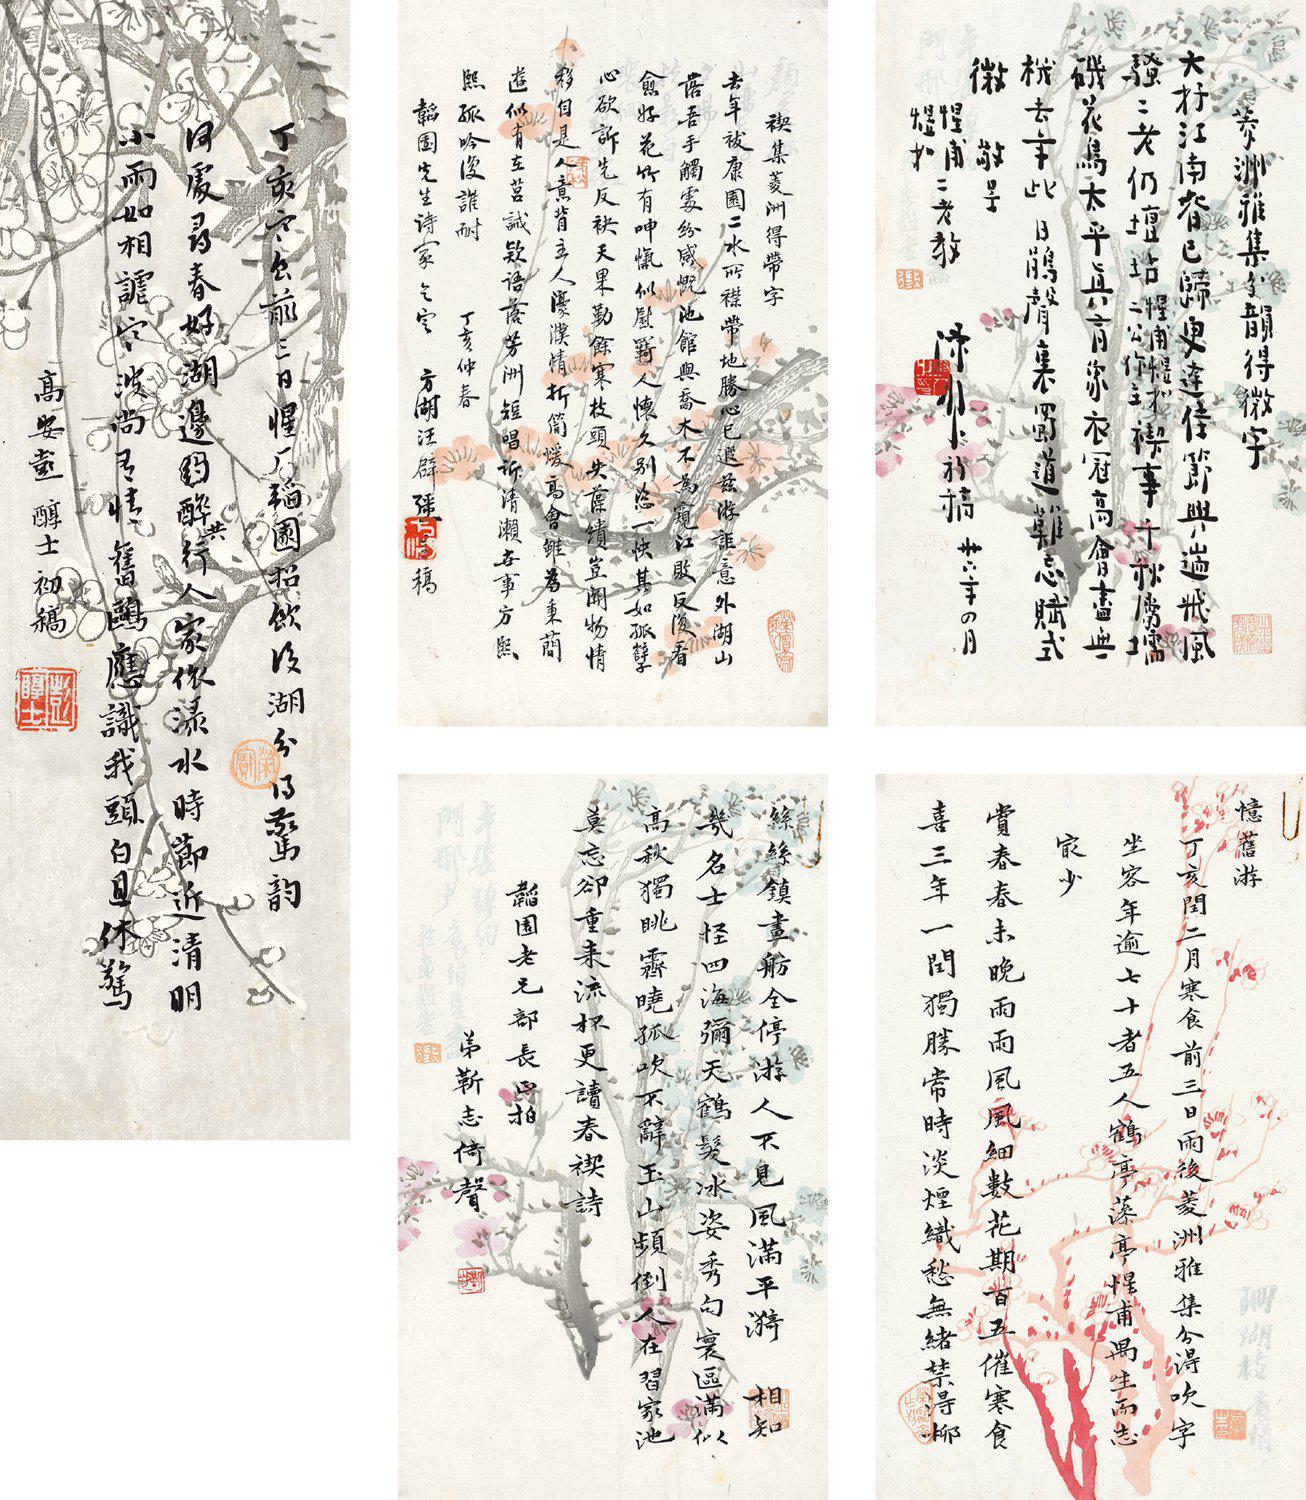 菱洲雅集分韻得微字
大好江南春已歸更逢佳節興遄飛風
騷二老仍壇坫惺甫惺杉二公作主禊事千秋屬孺
磯花鳥太平真有象衣冠高會盡無
機去年此日鵑聲裏蜀道難忘賦式
微 敬呈
惺甫惺杉二老教
初稿 卅六年四月
禊集菱洲得帶字
去年祓康園二水所襟帶地勝心已遐茲游詎意外湖山
落吾手觸處紛感慨池館與喬木不為窺江敗反復看
愈好花竹有呻愾似慰羇人懷久別忽一快其如孤孽
心欲訴先反袂天果勤餘寒枝頭失葆繢豈關物情
移自是人意背主人濠濮情折簡煖高會雖為秉蕑
遊似有在莒誡欵語落芳洲短唱訴清瀨世事方熙
熙孤吟復誰耐
丁亥仲春
韜園先生詩家乞定 方湖汪辟疆呈稿
丁亥寒食前三日惺厂韜園招飲後湖分得驚韵
何處尋春好湖邊共醉行人家依淥水時節近清明
小雨如相謔空波尚有情舊鷗應識我頭白且休驚
高安彭醇士初稿
憶舊游
丁亥閏二月寒食前三日雨後菱洲雅集分得吹字
坐客年逾七十者五人鶴亭藻亭惺甫禺生而志
最少
賞春春未晚雨雨風風細數花期百五催寒食
喜三年一閏獨勝常時淡煙織愁無緒禁得柳
絲絲鎮畫舫全停游人不見風滿平漪 相知
幾名士怪四海彌天鶴髮冰姿秀句寰區滿似
高秋獨眺霽曉孤吹不辭玉山頻倒人在習家池
莫忘卻重來流杯更讀春禊詩
韜園老兄部長正拍
弟靳志倚聲